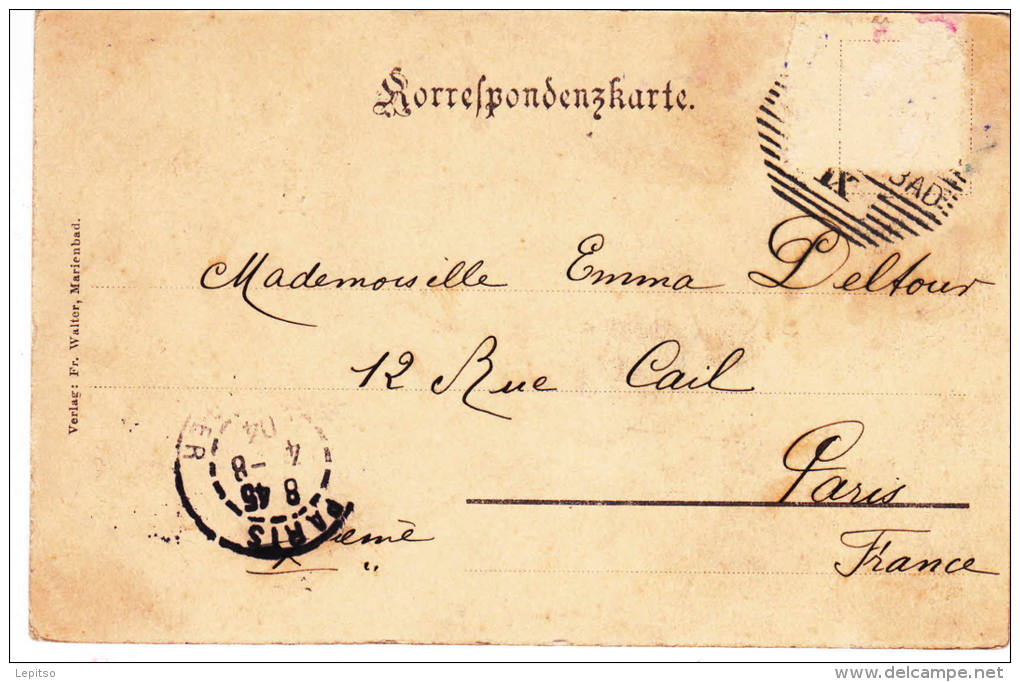 Korrespondenzkarte.
IX
BAD
Verlag: Fr. Walter, Marienbad.
Mademoiselle Emma Deltour
12 Rue Cail
Paris
France
X eme
"
PARIS
8 45
4 -8
04
ER
Lepitso
www.delcampe.net